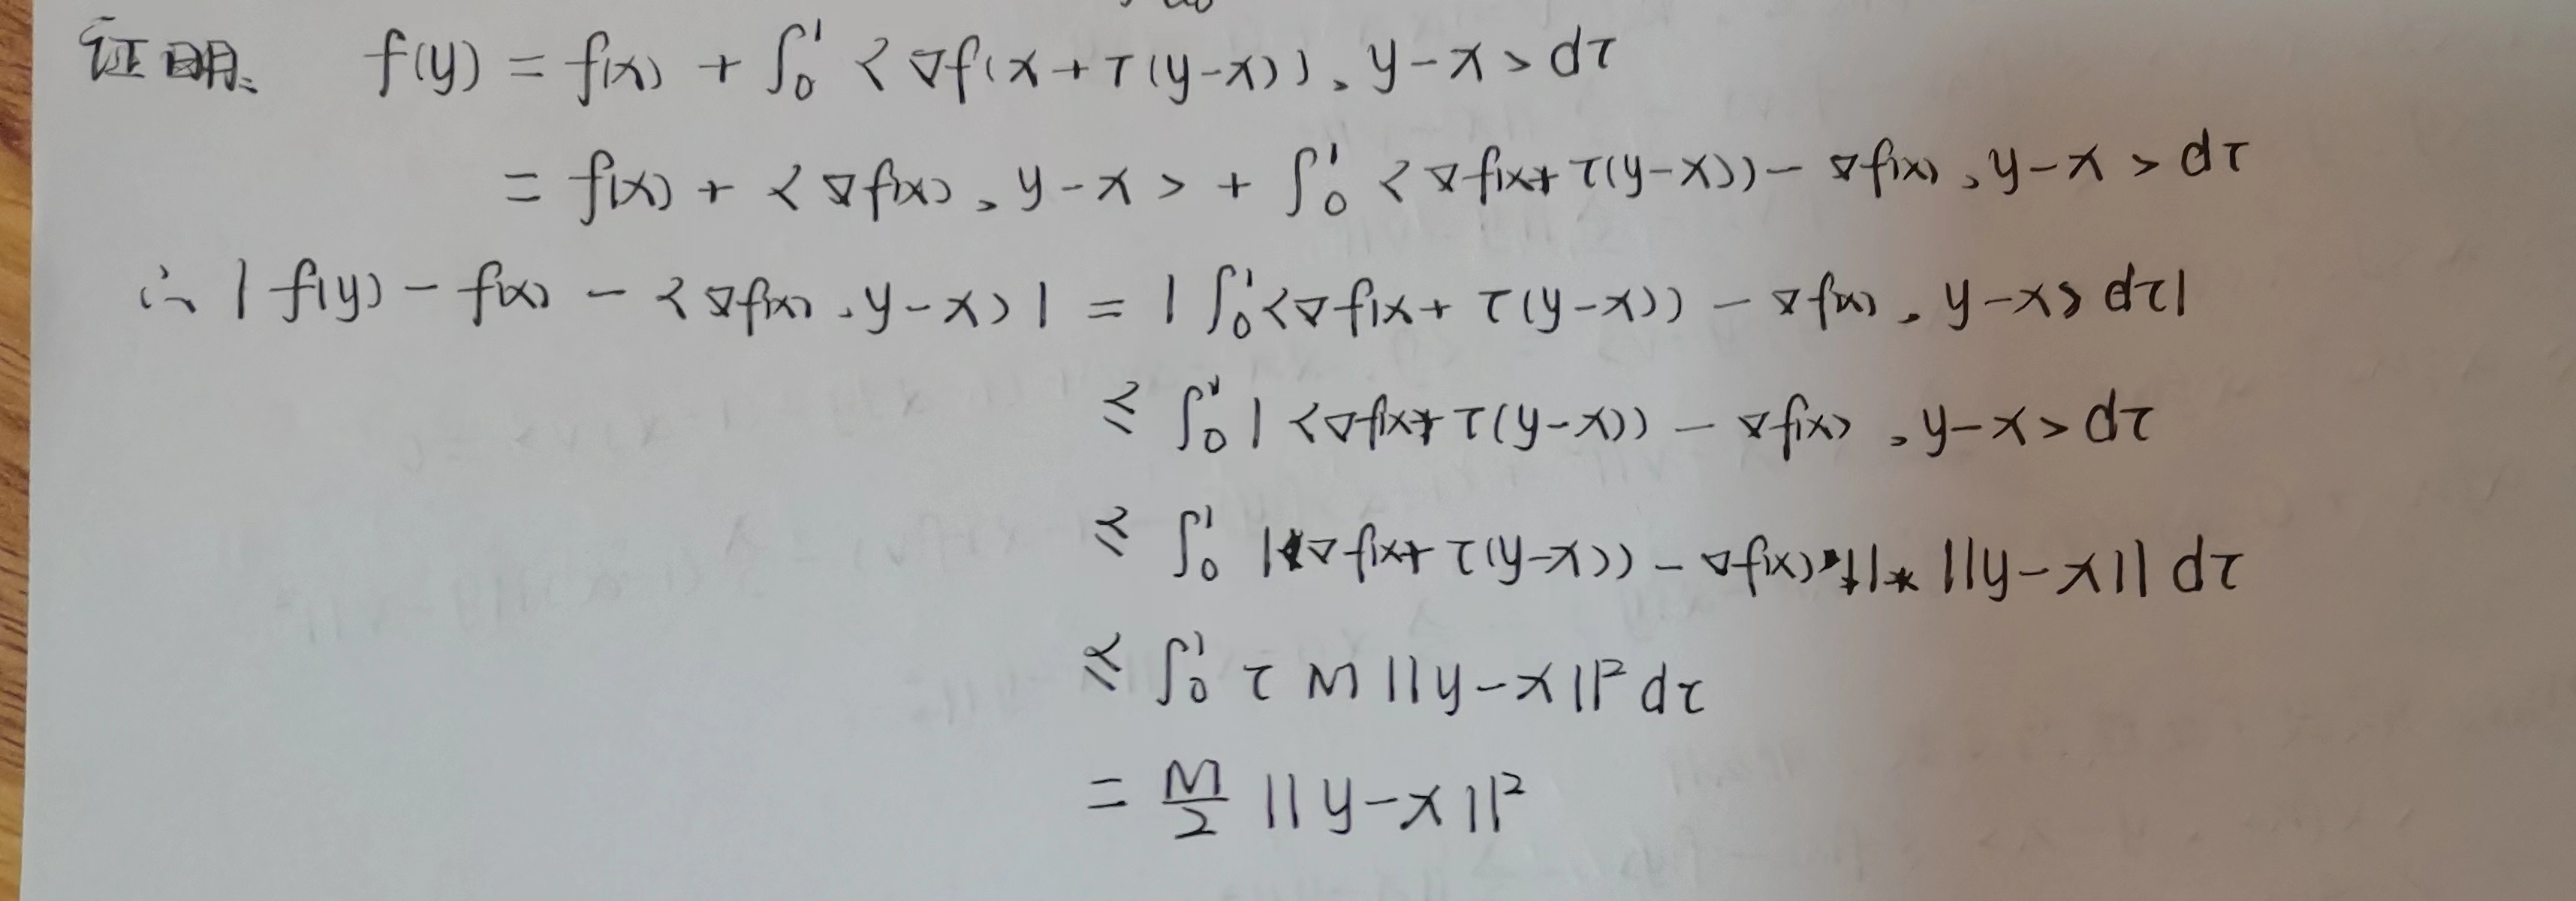 证明: f(y) = f(x) + ∫₀¹ <∇f(x+τ(y-x)), y-x> dτ
= f(x) + <∇f(x), y-x> + ∫₀¹ <∇f(x+τ(y-x)) - ∇f(x), y-x> dτ
∴ |f(y) - f(x) - <∇f(x), y-x>| = |∫₀¹ <∇f(x+τ(y-x)) - ∇f(x), y-x> dτ|
≤ ∫₀¹ | <∇f(x+τ(y-x)) - ∇f(x), y-x> dτ
≤ ∫₀¹ ||∇f(x+τ(y-x)) - ∇f(x)||* ||y-x|| dτ
≤ ∫₀¹ τ M ||y-x||² dτ
= M/2 ||y-x||²